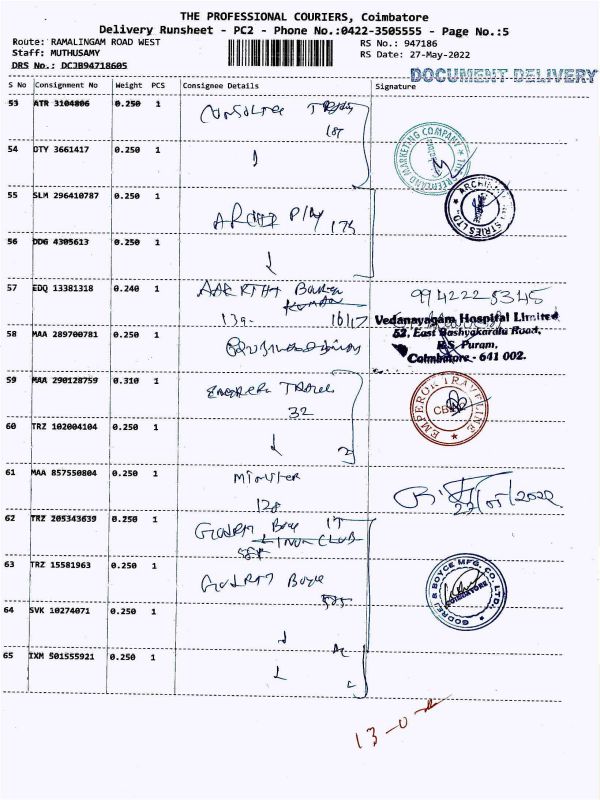 THE PROFESSIONAL COURIERS, Coimbatore
Delivery Runsheet - PC2 - Phone No.:0422-3505555 - Page No.:5
Route: RAMALINGAM ROAD WEST
RS No.: 947186
Staff: MUTHUSAMY
RS Date: 27-May-2022
DRS No.: DCJB94718605
DOCUMENT DELIVERY
S No Consignment No Weight PCS Consignee Details Signature
53 ATR 3104806 0.250 1
54 OTY 3661417 0.250 1
MARKETING COMPANY
55 SLM 296410787 0.250 1
174
56 DDG 4305613 0.250 1
57 EDQ 13381318 0.240 1
9942225345
139.
Vedanayagam Hospital Limited
52, East Bashyakaralu Road,
R.S. Puram,
Coimbatore - 641 002.
58 MAA 289700781 0.250 1
59 MAA 290128759 0.310 1
32
EMPEROR TRAVELINE
CBE
60 TRZ 102004104 0.250 1
61 MAA 857550804 0.250 1
Minister
128
27/05/2022
62 TRZ 205343639 0.250 1
Godrej Boyce
LION CLUB
63 TRZ 15581963 0.250 1
Godrej Boyce
585
GODREJ & BOYCE MFG. CO. LTD.,
COIMBATORE
64 SVK 10274071 0.250 1
65 IXM 501555921 0.250 1
13-0